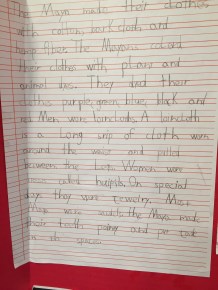 The Maya made their clothes
with cotton, bark cloth and
hemp fiber. The Mayans colord
their clothes with plants and
animel dies. They dyed their
cloths purple, green, blue, black and
red. Men wore loincloths. A loincloth
is a Long strip of cloth worn
around the waist and pulled
between the Legs. Women wore
called huipils. On special
days they wore Jewelry. Most
were the Maya made
their teeth pointy and